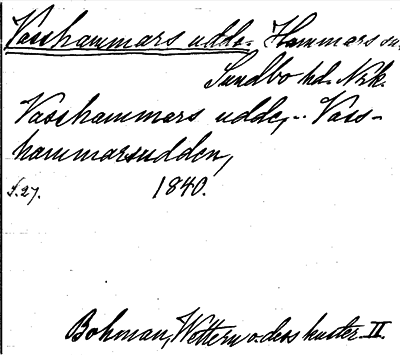 Vasshammars udde. Hammars sn.
Sundbo hd. Nrk.
Vasshammars udde, .. Vass-
hammarsudden,
S. 27. 1840.
Bohman, Wettern o. dess kuster. II.